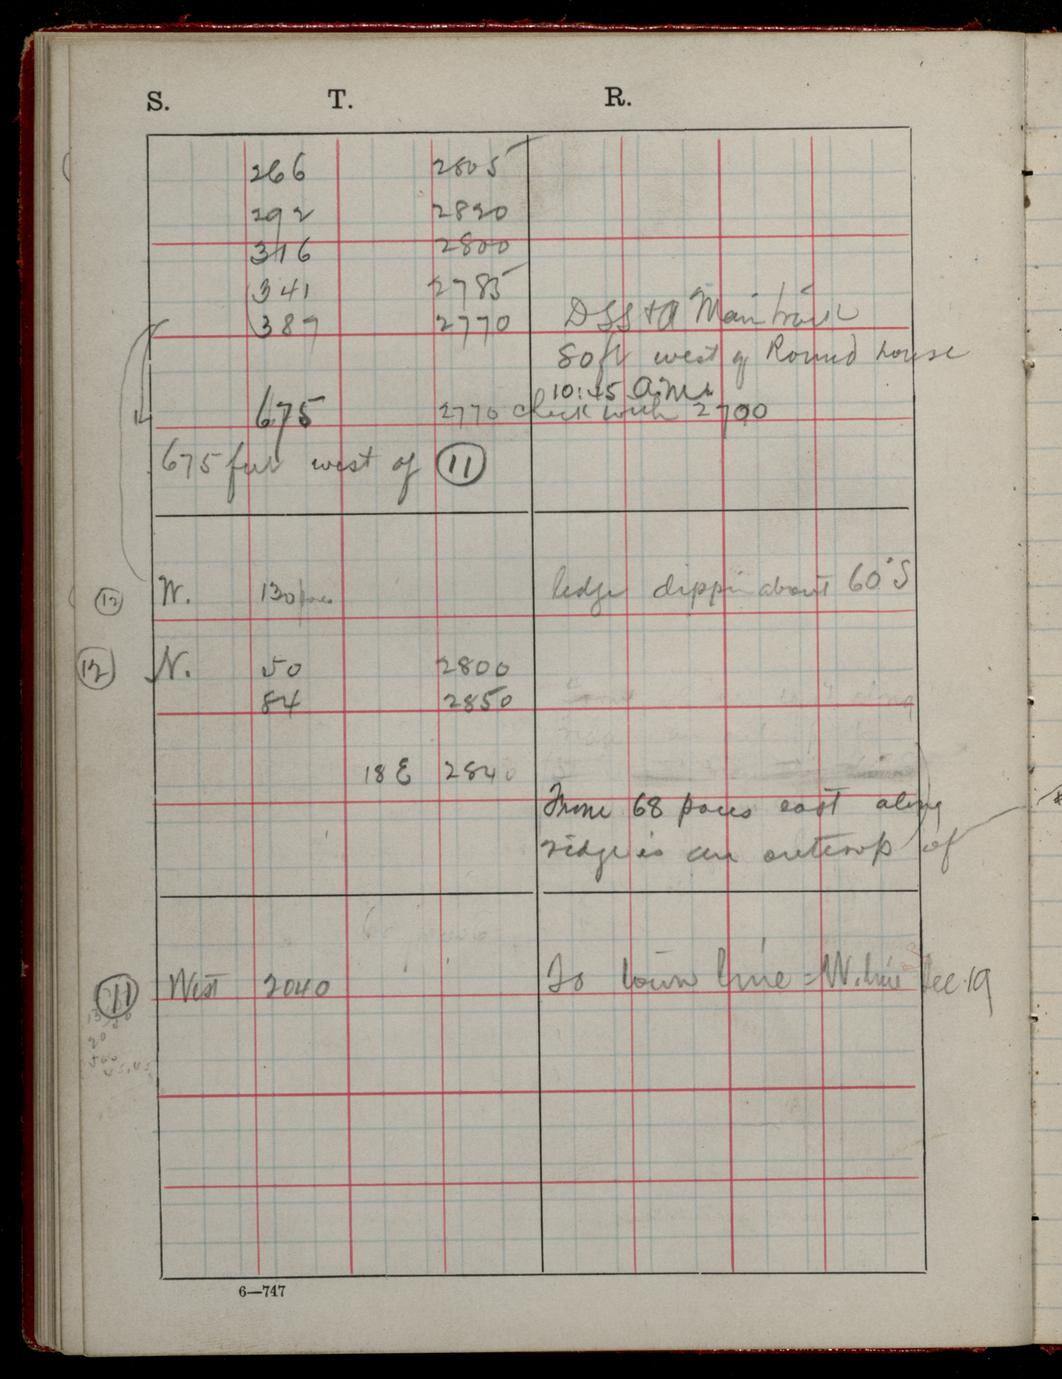 S. T. R.
266 2805
292 2820
316 2800
341 2785
387 2770 DSS & A Main track
80 ft west of Round house
10:45 a.m.
675 2770 check with 2700
675 feet west of (11)
(12) W. 130 paces ledge dippin about 60° S
(12) N. 50 2800
84 2850
18 E 2840
From 68 paces east along
ridge is an outcrop of
(11) West 2040 To town line = W. line Sec. 19
6—747